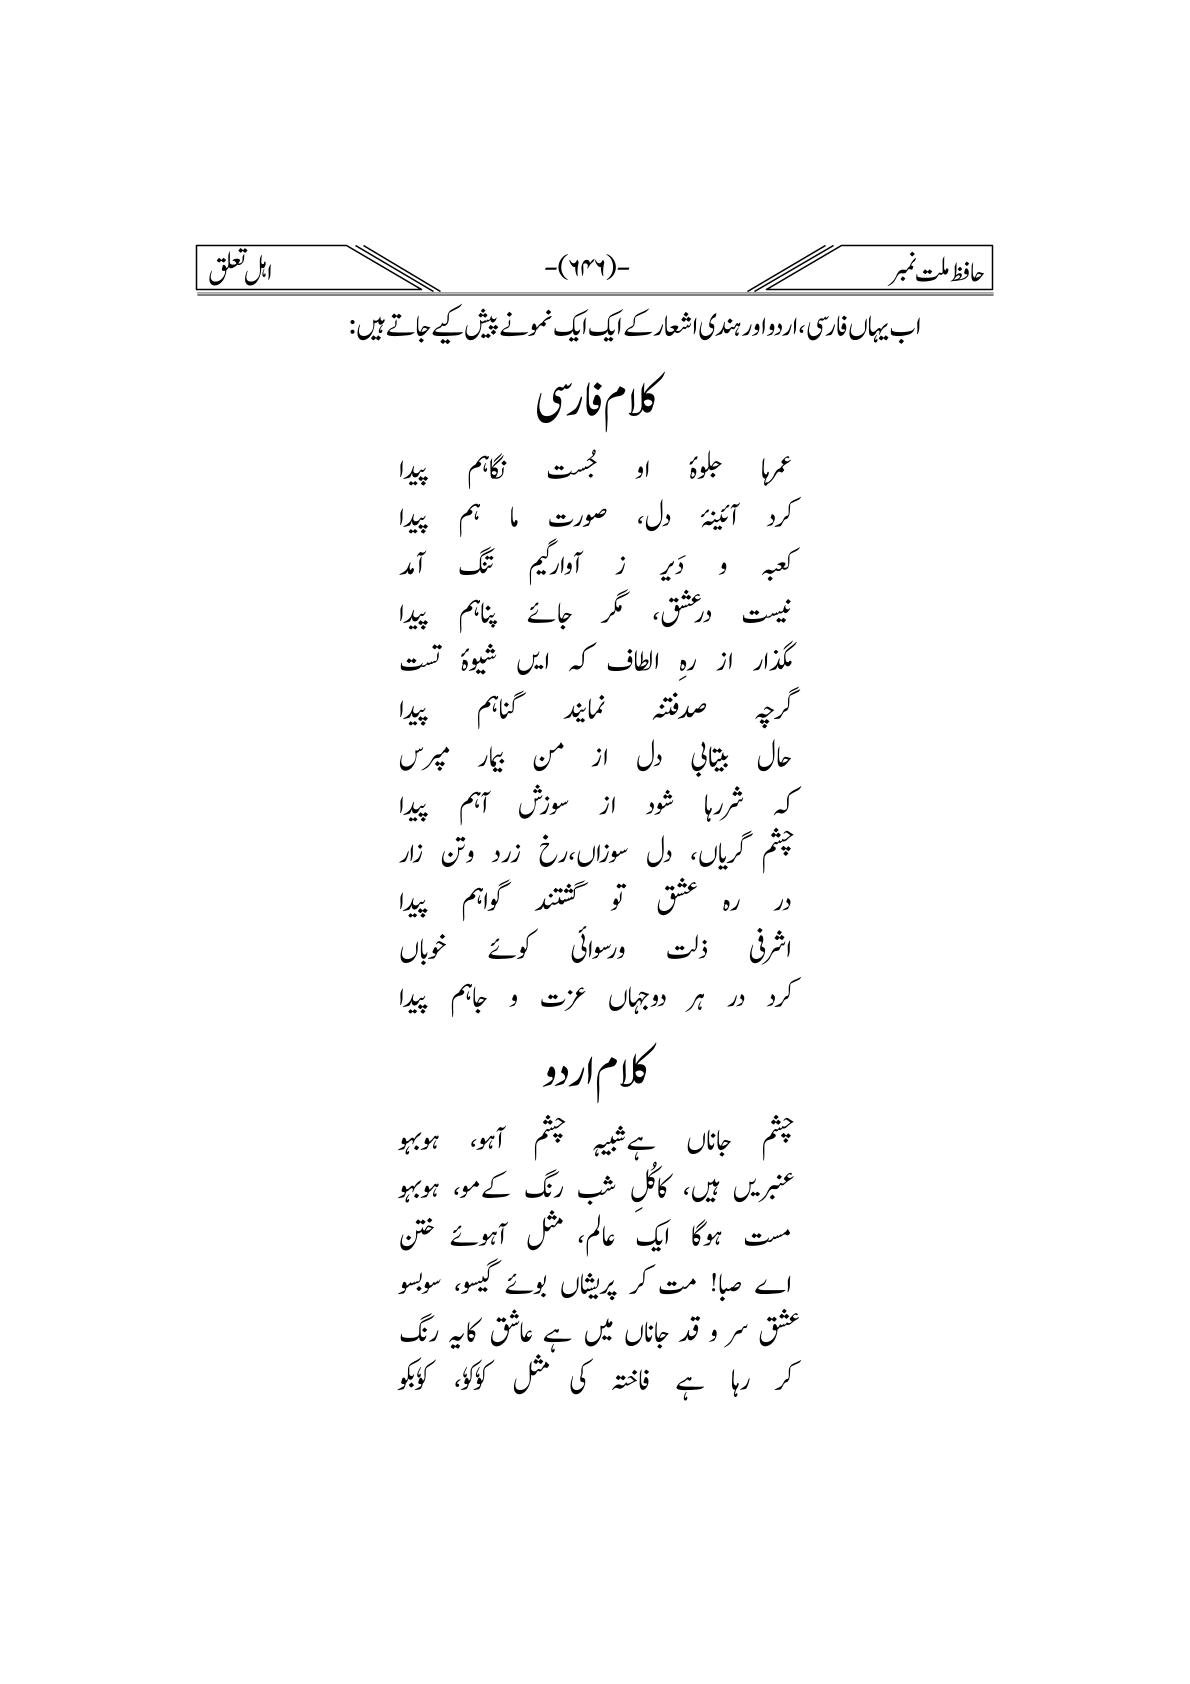 حافظ ملت نمبر -(۶۴۶)- اہل تعلق
اب یہاں فارسی، اردو اور ہندی اشعار کے ایک ایک نمونے پیش کیے جاتے ہیں:
کلام فارسی
عمرہا جلوۂ او جُست نگاہم پیدا
کرد آئینۂ دل، صورت ما ہم پیدا
کعبہ و دَیر ز آوارگیم تنگ آمد
نیست در عشق، مگر جائے پناہم پیدا
مگذار از رہِ الطاف کہ ایں شیوۂ تست
گرچہ صد فتنہ نمایند گناہم پیدا
حال بیتابیِ دل از من بیمار مپرس
کہ شررہا شود از سوزش آہم پیدا
چشم گریاں، دل سوزاں، رخ زرد وتن زار
در رہ عشق تو گشتند گواہم پیدا
اشرفی ذلت ورسوائی کوئے خوباں
کرد در ہر دوجہاں عزت و جاہم پیدا
کلام اردو
چشم جاناں ہے شبیہ چشم آہو، ہوبہو
عنبریں ہیں، کاکُلِ شب رنگ کے مو، ہوبہو
مست ہوگا ایک عالم، مثل آہوئے ختن
اے صبا! مت کر پریشاں بوئے گیسو، سوبسو
عشق سر و قد جاناں میں ہے عاشق کا یہ رنگ
کر رہا ہے فاختہ کی مثل کوٗکوٗ، کوٗبکو